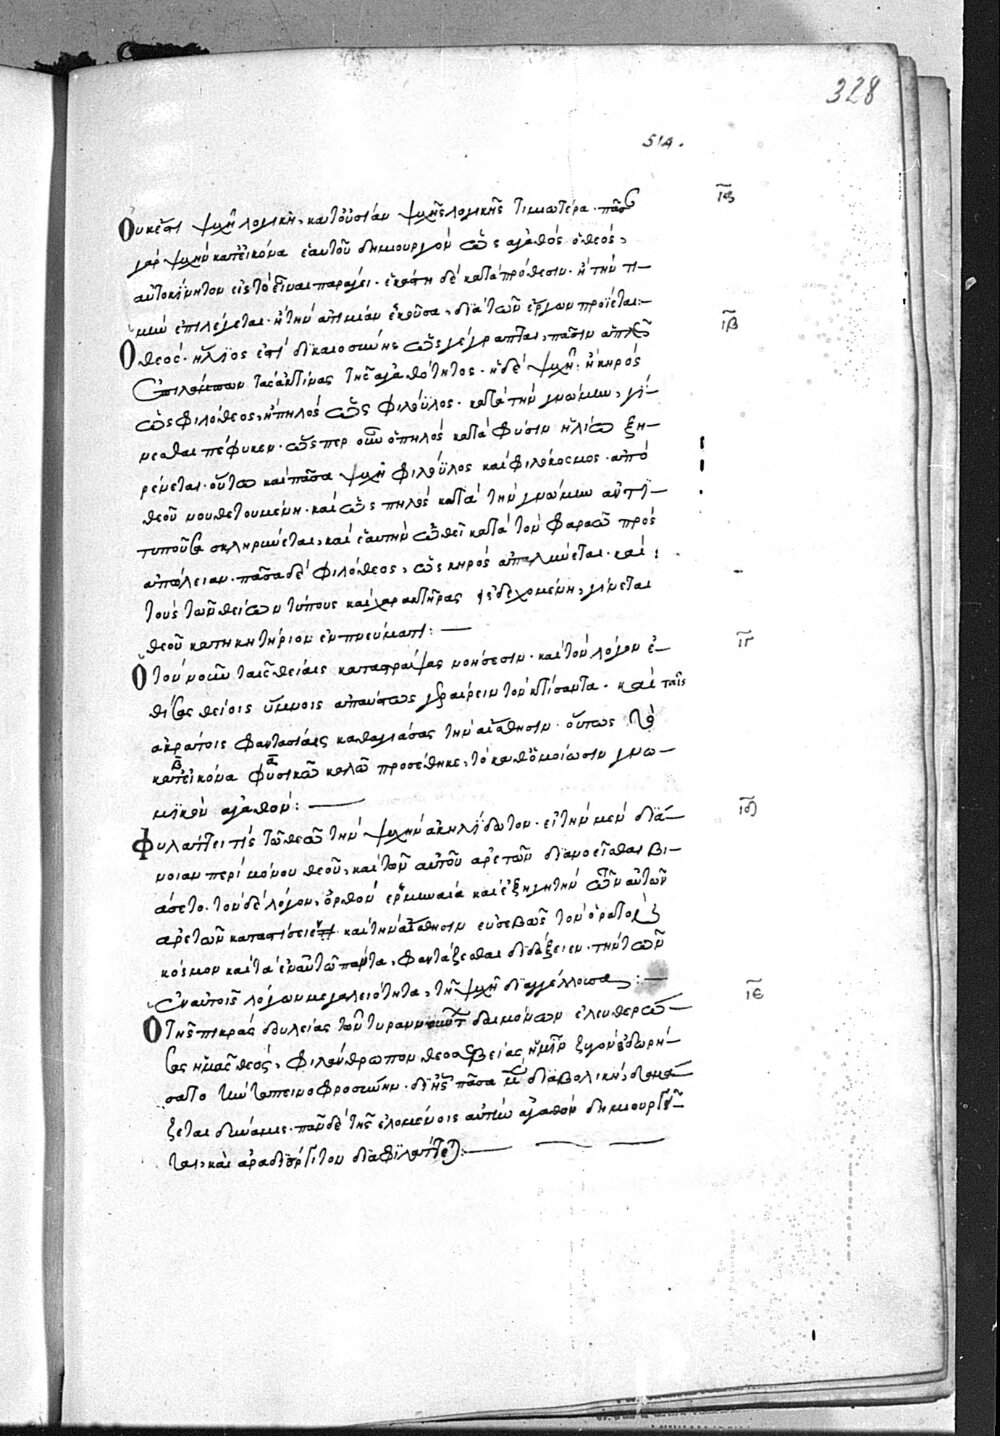 328
514.
Οὐκέστι ψυχὴ λογικὴ, κατ' οὐσίαν ψυχῆς λογικῆς τιμιωτέρα· πᾶσαν ια
γὰρ ψυχὴν κατ' εἰκόνα ἑαυτοῦ δημιουργῶν ὡς ἀγαθὸς ὁ θεός,
αὐτοκίνητον εἰς τὸ εἶναι παράγει· ἑκάστη δὲ κατὰ πρόθεσιν· ἢ τὴν τι-
μὴν ἐπιλέγεται· ἢ τὴν ἀτιμίαν ἑκοῦσα, διὰ τῶν ἔργων προΐεται:-
Ὁ θεός· ἥλιος ἐστὶ δικαιοσύνης ὡς γέγραπται, πᾶσιν ἁπλῶς ιβ
ἐπιλάμπων τὰς ἀκτίνας τῆς ἀγαθότητος· ἡ δὲ ψυχὴ· ἢ κηρὸς
ὡς φιλόθεος, ἢ πηλὸς ὡς φιλόϋλος· κατὰ τὴν γνώμην, γί-
νεσθαι πέφυκεν· ὥσπερ οὖν ὁ πηλὸς κατὰ φύσιν ἡλίω ξη-
ραίνεται· οὕτω καὶ πᾶσα ψυχὴ φιλόϋλος καὶ φιλόκοσμος· ἀπὸ
θεοῦ νουθετουμένη· καὶ ὡς πηλὸς κατὰ τὴν γνώμην ἀντι-
τυποῦσα σκληρύνεται, καὶ ἑαυτὴν ὠθεῖ κατὰ τὸν φαραὼ πρὸς
ἀπώλειαν· πᾶσα δὲ φιλόθεος, ὡς κηρὸς ἁπαλύνεται· καὶ
τοὺς τῶν θείων τύπους καὶ χαρακτῆρας εἰσδεχομένη, γίνεται
θεοῦ κατοικητήριον ἐν πνεύματι:—
Ὁ τὸν νοῦν ταῖς θείαις καταστράψας νοήσεσιν· καὶ τὸν λόγον ἐ- ιγ
θίσας θείοις ὕμνοις ἀπαύστως γεραίρειν τὸν κτίσαντα· καὶ ταῖς
ἀκράτοις φαντασίαις καθαγιάσας τὴν αἴσθησιν· οὗτος τῶ
κατ' εἰκόνα φυσικῶ καλῶ προσέθηκε, τὸ καθ' ὁμοίωσιν γνω-
β α
μικὸν ἀγαθόν:—
Φυλάττει τίς τῶ θεῶ τὴν ψυχὴν ἀκηλίδωτον· εἰ τὴν μὲν διά- ιδ
νοιαν περὶ μόνου θεοῦ, καὶ τῶν αὐτοῦ ἀρετῶν διανοεῖσθαι βι-
άσεται· τὸν δὲ λόγον, ὀρθὸν ἑρμηνέα καὶ ἐξηγητὴν τῶν αὐτῶν
ἀρετῶν καταστήσειεν καὶ τὴν αἴσθησιν εὐσεβῶς τὸν ὁρατὸν
κόσμον καὶ τὰ ἐν αὐτῶ πάντα, φαντάζεσθαι διδάξειεν· τὴν τῶν
ἐν αὐτοῖς λόγων μεγαλειότητα, τῆ ψυχῆ διαγγέλλουσα:—
Ὁ τῆς πικρᾶς δουλείας τῶν τυραννούντων δαιμόνων ἐλευθερώ- ιε
σας ἡμᾶς θεός, φιλάνθρωπον θεοσεβείας ἡμῖν ζυγὸν ἐδωρή-
σατο τὴν ταπεινοφροσύνην· δι' ἧς πᾶσα μὲν διαβολικὴ, δαμά-
ζεται δύναμις· πᾶν δὲ τοῖς ἑλομένοις αὐτὴν ἀγαθὸν δημιουργεῖ-
ται, καὶ ἀραδιούργητον διαφυλάττεται:—